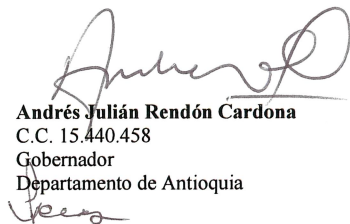 Andrés Julián Rendón Cardona
C.C. 15.440.458
Gobernador
Departamento de Antioquia